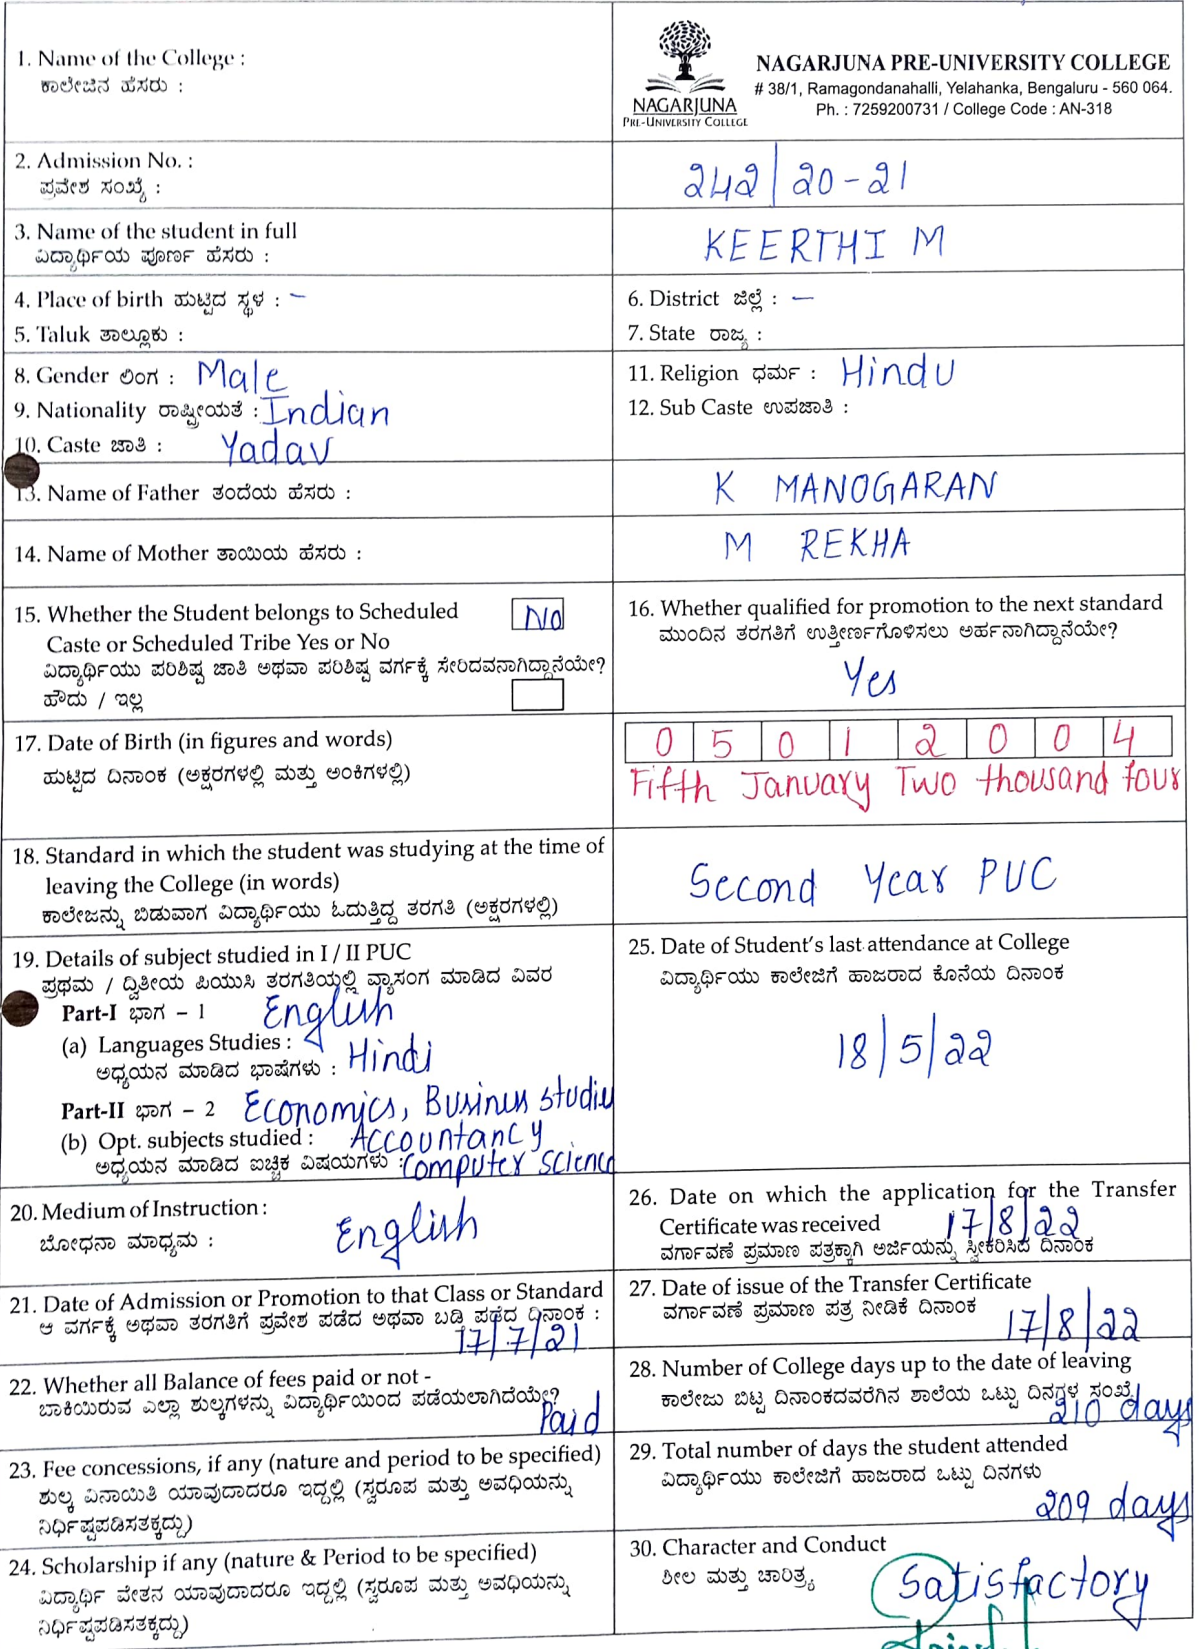 1. Name of the College :
ಕಾಲೇಜಿನ ಹೆಸರು :
NAGARJUNA
PRE-UNIVERSITY COLLEGE
NAGARJUNA PRE-UNIVERSITY COLLEGE
# 38/1, Ramagondanahalli, Yelahanka, Bengaluru - 560 064.
Ph. : 7259200731 / College Code : AN-318
2. Admission No. :
ಪ್ರವೇಶ ಸಂಖ್ಯೆ :
242/20-21
3. Name of the student in full
ವಿದ್ಯಾರ್ಥಿಯ ಪೂರ್ಣ ಹೆಸರು :
KEERTHI M
4. Place of birth ಹುಟ್ಟಿದ ಸ್ಥಳ : -
5. Taluk ತಾಲ್ಲೂಕು :
6. District ಜಿಲ್ಲೆ : -
7. State ರಾಜ್ಯ :
8. Gender ಲಿಂಗ : Male
9. Nationality ರಾಷ್ಟ್ರೀಯತೆ : Indian
10. Caste ಜಾತಿ : Yadav
11. Religion ಧರ್ಮ : Hindu
12. Sub Caste ಉಪಜಾತಿ :
13. Name of Father ತಂದೆಯ ಹೆಸರು :
K MANOGARAN
14. Name of Mother ತಾಯಿಯ ಹೆಸರು :
M REKHA
15. Whether the Student belongs to Scheduled
Caste or Scheduled Tribe Yes or No
No
ವಿದ್ಯಾರ್ಥಿಯು ಪರಿಶಿಷ್ಟ ಜಾತಿ ಅಥವಾ ಪರಿಶಿಷ್ಟ ವರ್ಗಕ್ಕೆ ಸೇರಿದವನಾಗಿದ್ದಾನೆಯೇ?
ಹೌದು / ಇಲ್ಲ
16. Whether qualified for promotion to the next standard
ಮುಂದಿನ ತರಗತಿಗೆ ಉತ್ತೀರ್ಣಗೊಳಿಸಲು ಅರ್ಹನಾಗಿದ್ದಾನೆಯೇ?
Yes
17. Date of Birth (in figures and words)
ಹುಟ್ಟಿದ ದಿನಾಂಕ (ಅಕ್ಷರಗಳಲ್ಲಿ ಮತ್ತು ಅಂಕಿಗಳಲ್ಲಿ)
0 5 0 1 2 0 0 4
Fifth January Two thousand four
18. Standard in which the student was studying at the time of
leaving the College (in words)
ಕಾಲೇಜನ್ನು ಬಿಡುವಾಗ ವಿದ್ಯಾರ್ಥಿಯು ಓದುತ್ತಿದ್ದ ತರಗತಿ (ಅಕ್ಷರಗಳಲ್ಲಿ)
Second Year PUC
19. Details of subject studied in I / II PUC
ಪ್ರಥಮ / ದ್ವಿತೀಯ ಪಿಯುಸಿ ತರಗತಿಯಲ್ಲಿ ವ್ಯಾಸಂಗ ಮಾಡಿದ ವಿವರ
Part-I ಭಾಗ - 1 English
(a) Languages Studies :
Hindi
ಅಧ್ಯಯನ ಮಾಡಿದ ಭಾಷೆಗಳು :
Part-II ಭಾಗ - 2 Economics, Business studies
(b) Opt. subjects studied : Accountancy
ಅಧ್ಯಯನ ಮಾಡಿದ ಐಚ್ಛಿಕ ವಿಷಯಗಳು : Computer Science
25. Date of Student's last attendance at College
ವಿದ್ಯಾರ್ಥಿಯು ಕಾಲೇಜಿಗೆ ಹಾಜರಾದ ಕೊನೆಯ ದಿನಾಂಕ
18/5/22
20. Medium of Instruction :
ಬೋಧನಾ ಮಾಧ್ಯಮ :
English
26. Date on which the application for the Transfer
Certificate was received 17/8/22
ವರ್ಗಾವಣೆ ಪ್ರಮಾಣ ಪತ್ರಕ್ಕಾಗಿ ಅರ್ಜಿಯನ್ನು ಸ್ವೀಕರಿಸಿದ ದಿನಾಂಕ
21. Date of Admission or Promotion to that Class or Standard
ಆ ವರ್ಗಕ್ಕೆ ಅಥವಾ ತರಗತಿಗೆ ಪ್ರವೇಶ ಪಡೆದ ಅಥವಾ ಬಡ್ತಿ ಪಡೆದ ದಿನಾಂಕ :
17/7/21
27. Date of issue of the Transfer Certificate
ವರ್ಗಾವಣೆ ಪ್ರಮಾಣ ಪತ್ರ ನೀಡಿಕೆ ದಿನಾಂಕ
17/8/22
22. Whether all Balance of fees paid or not -
ಬಾಕಿಯಿರುವ ಎಲ್ಲಾ ಶುಲ್ಕಗಳನ್ನು ವಿದ್ಯಾರ್ಥಿಯಿಂದ ಪಡೆಯಲಾಗಿದೆಯೇ?
Paid
28. Number of College days up to the date of leaving
ಕಾಲೇಜು ಬಿಟ್ಟ ದಿನಾಂಕದವರೆಗಿನ ಶಾಲೆಯ ಒಟ್ಟು ದಿನಗಳ ಸಂಖ್ಯೆ
210 days
23. Fee concessions, if any (nature and period to be specified)
ಶುಲ್ಕ ವಿನಾಯಿತಿ ಯಾವುದಾದರೂ ಇದ್ದಲ್ಲಿ (ಸ್ವರೂಪ ಮತ್ತು ಅವಧಿಯನ್ನು
ನಿರ್ಧಿಷ್ಟಪಡಿಸತಕ್ಕದ್ದು)
29. Total number of days the student attended
ವಿದ್ಯಾರ್ಥಿಯು ಕಾಲೇಜಿಗೆ ಹಾಜರಾದ ಒಟ್ಟು ದಿನಗಳು
209 days
24. Scholarship if any (nature & Period to be specified)
ವಿದ್ಯಾರ್ಥಿ ವೇತನ ಯಾವುದಾದರೂ ಇದ್ದಲ್ಲಿ (ಸ್ವರೂಪ ಮತ್ತು ಅವಧಿಯನ್ನು
ನಿರ್ಧಿಷ್ಟಪಡಿಸತಕ್ಕದ್ದು)
30. Character and Conduct
ಶೀಲ ಮತ್ತು ಚಾರಿತ್ರ್ಯ
Satisfactory